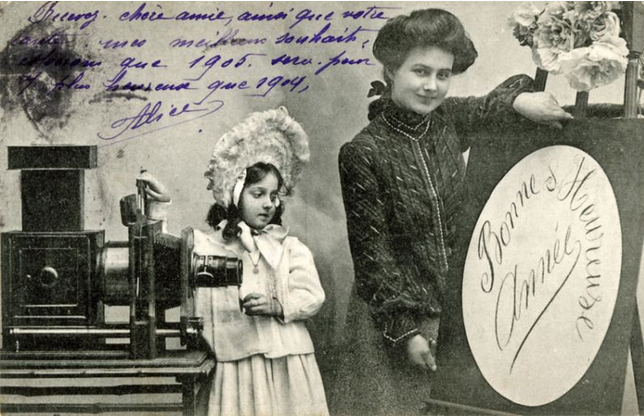 Recevez, chère amie, ainsi que votre
mes meilleurs souhaits,
espérons que 1905 sera pour
plus heureuse que 1904,
Alice
Bonne & Heureuse
Année